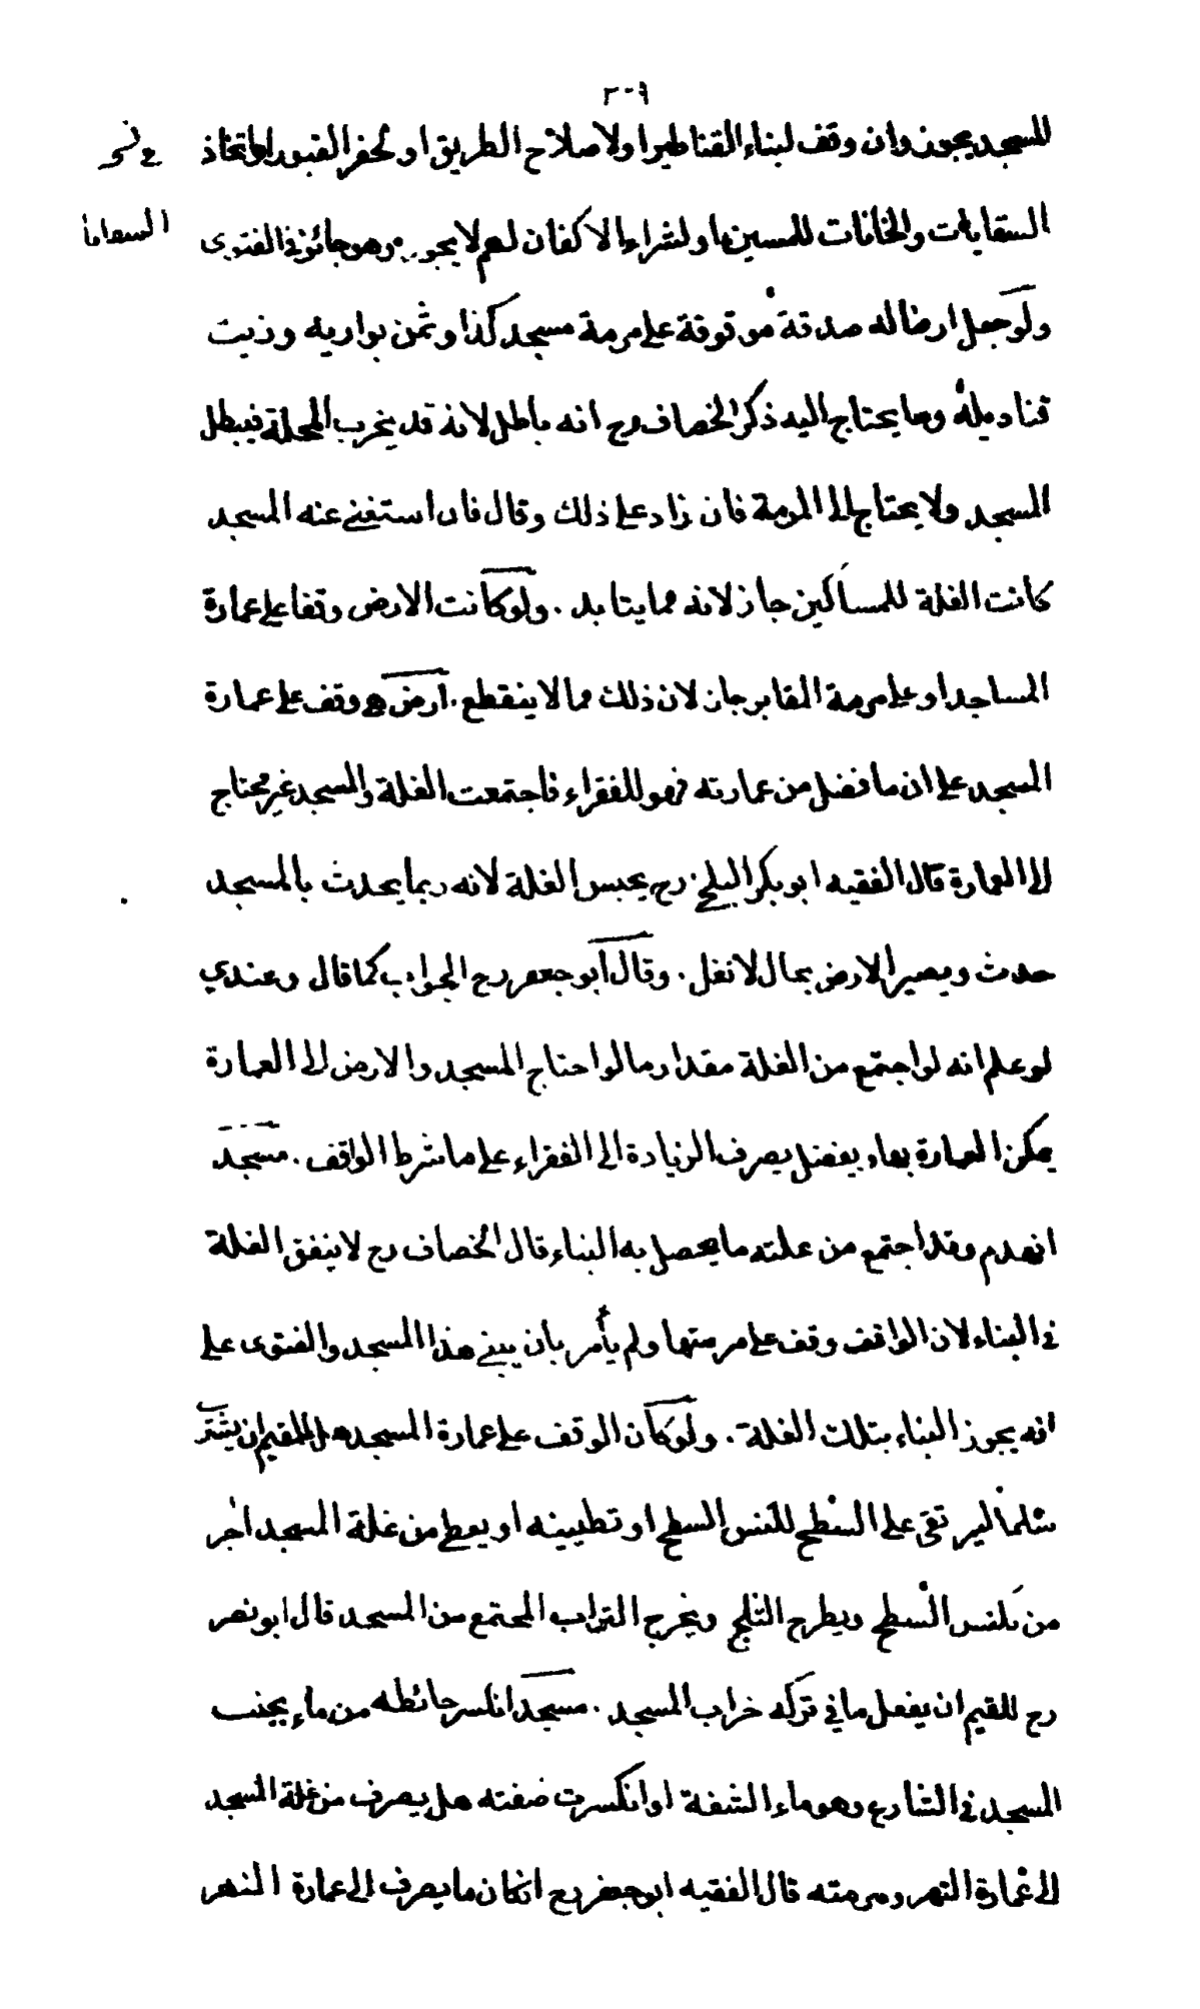 ٣٠٩
للمسجد يجوز وان وقف لبناء القناطير او لاصلاح الطريق او لحفر القبور او اتخاذ
السقايات والخانات للمسلمين او لشراء الاكفان لهم لا يجوز وهو جائز في الفتوى
ولو جعل ارضا له صدقة موقوفة على مرمة مسجد كذا وثمن بواريه وزيت
قناديله وما يحتاج اليه ذكر الخصاف رح انه باطل لانه قد يخرب المحلة فيبطل
المسجد ولا يحتاج الى المرمة فان زاد على ذلك وقال فان استغنى عنه المسجد
كانت الغلة للمساكين جاز لانه مما يتابد . ولو كانت الارض وقفا على عمارة
المساجد او على مرمة المقابر جاز لان ذلك مما لا ينقطع . ارض هي وقف على عمارة
المسجد على ان ما فضل من عمارته فهو للفقراء فاجتمعت الغلة والمسجد غير محتاج
الى العمارة قال الفقيه ابو بكر البلخي رح يحبس الغلة لانه ربما يحدث بالمسجد
حدث ويصير الارض بحال لا تغل . وقال ابو جعفر رح الجواب كما قال وعندي
لو علم انه لو اجتمع من الغلة مقدار ما لو احتاج المسجد والارض الى العمارة
يمكن العمارة بها ويفضل يصرف الزيادة الى الفقراء على ما شرط الواقف . مسجد
انهدم وقد اجتمع من غلته ما يحصل به البناء قال الخصاف رح لا ينفق الغلة
في البناء لان الواقف وقف على مرمتها ولم يأمر بان يبنى هذا المسجد والفتوى على
انه يجوز البناء بتلك الغلة . ولو كان الوقف على عمارة المسجد هل للقيم ان يشتر
سلما ليرتقى على السطح لكنس السطح او تطيينه او يعطى من غلة المسجد اجر
من يكنس السطح ويطرح الثلج ويخرج التراب المجتمع من المسجد قال ابو نصر
رح للقيم ان يفعل ما في تركه خراب المسجد . مسجد انكسر حائطه من ماء بجنب
المسجد في الشارع وهو ماء الشفة او انكسرت ضفته هل يصرف من غلة المسجد
الى عمارة النهر ومرمته قال الفقيه ابو جعفر رح ان كان ما يصرف الى عمارة النهر